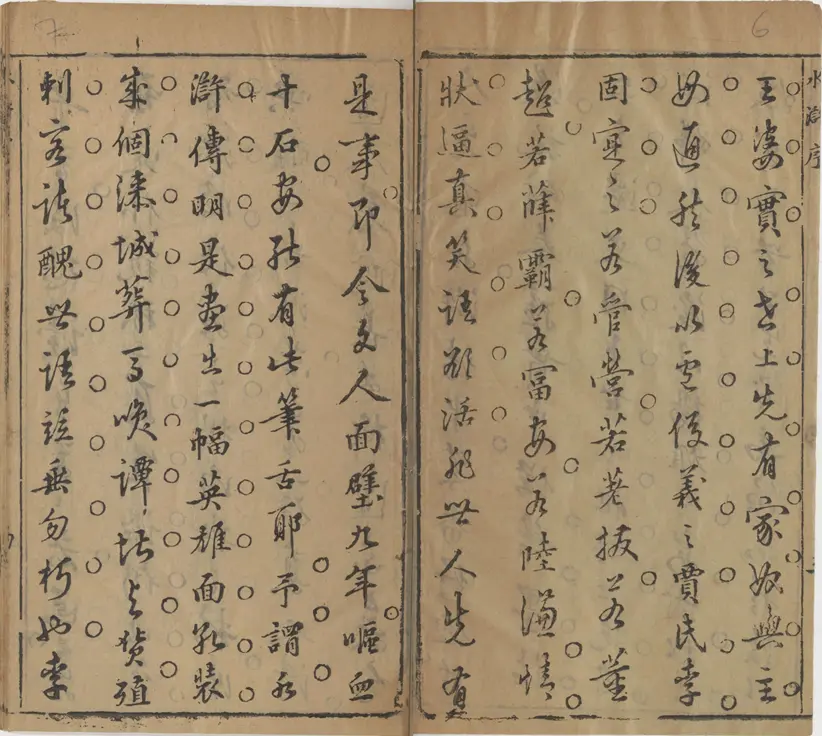 6
水滸序
王婆實之世上先有家奴與主
母通然後以盧俊義之賈氏李
固實之若管營若差撥若董
超若薛霸若富安若陸謙情
狀逼真笑語欲活非世人先有
7
是事即令文人面壁九年嘔血
十石安能有此筆舌耶予謂水
滸傳明是畫出一幅英雄面孔裝
成個漆城葬馬譚堪與貨殖
刺客諸醜世語竝垂勿朽也李